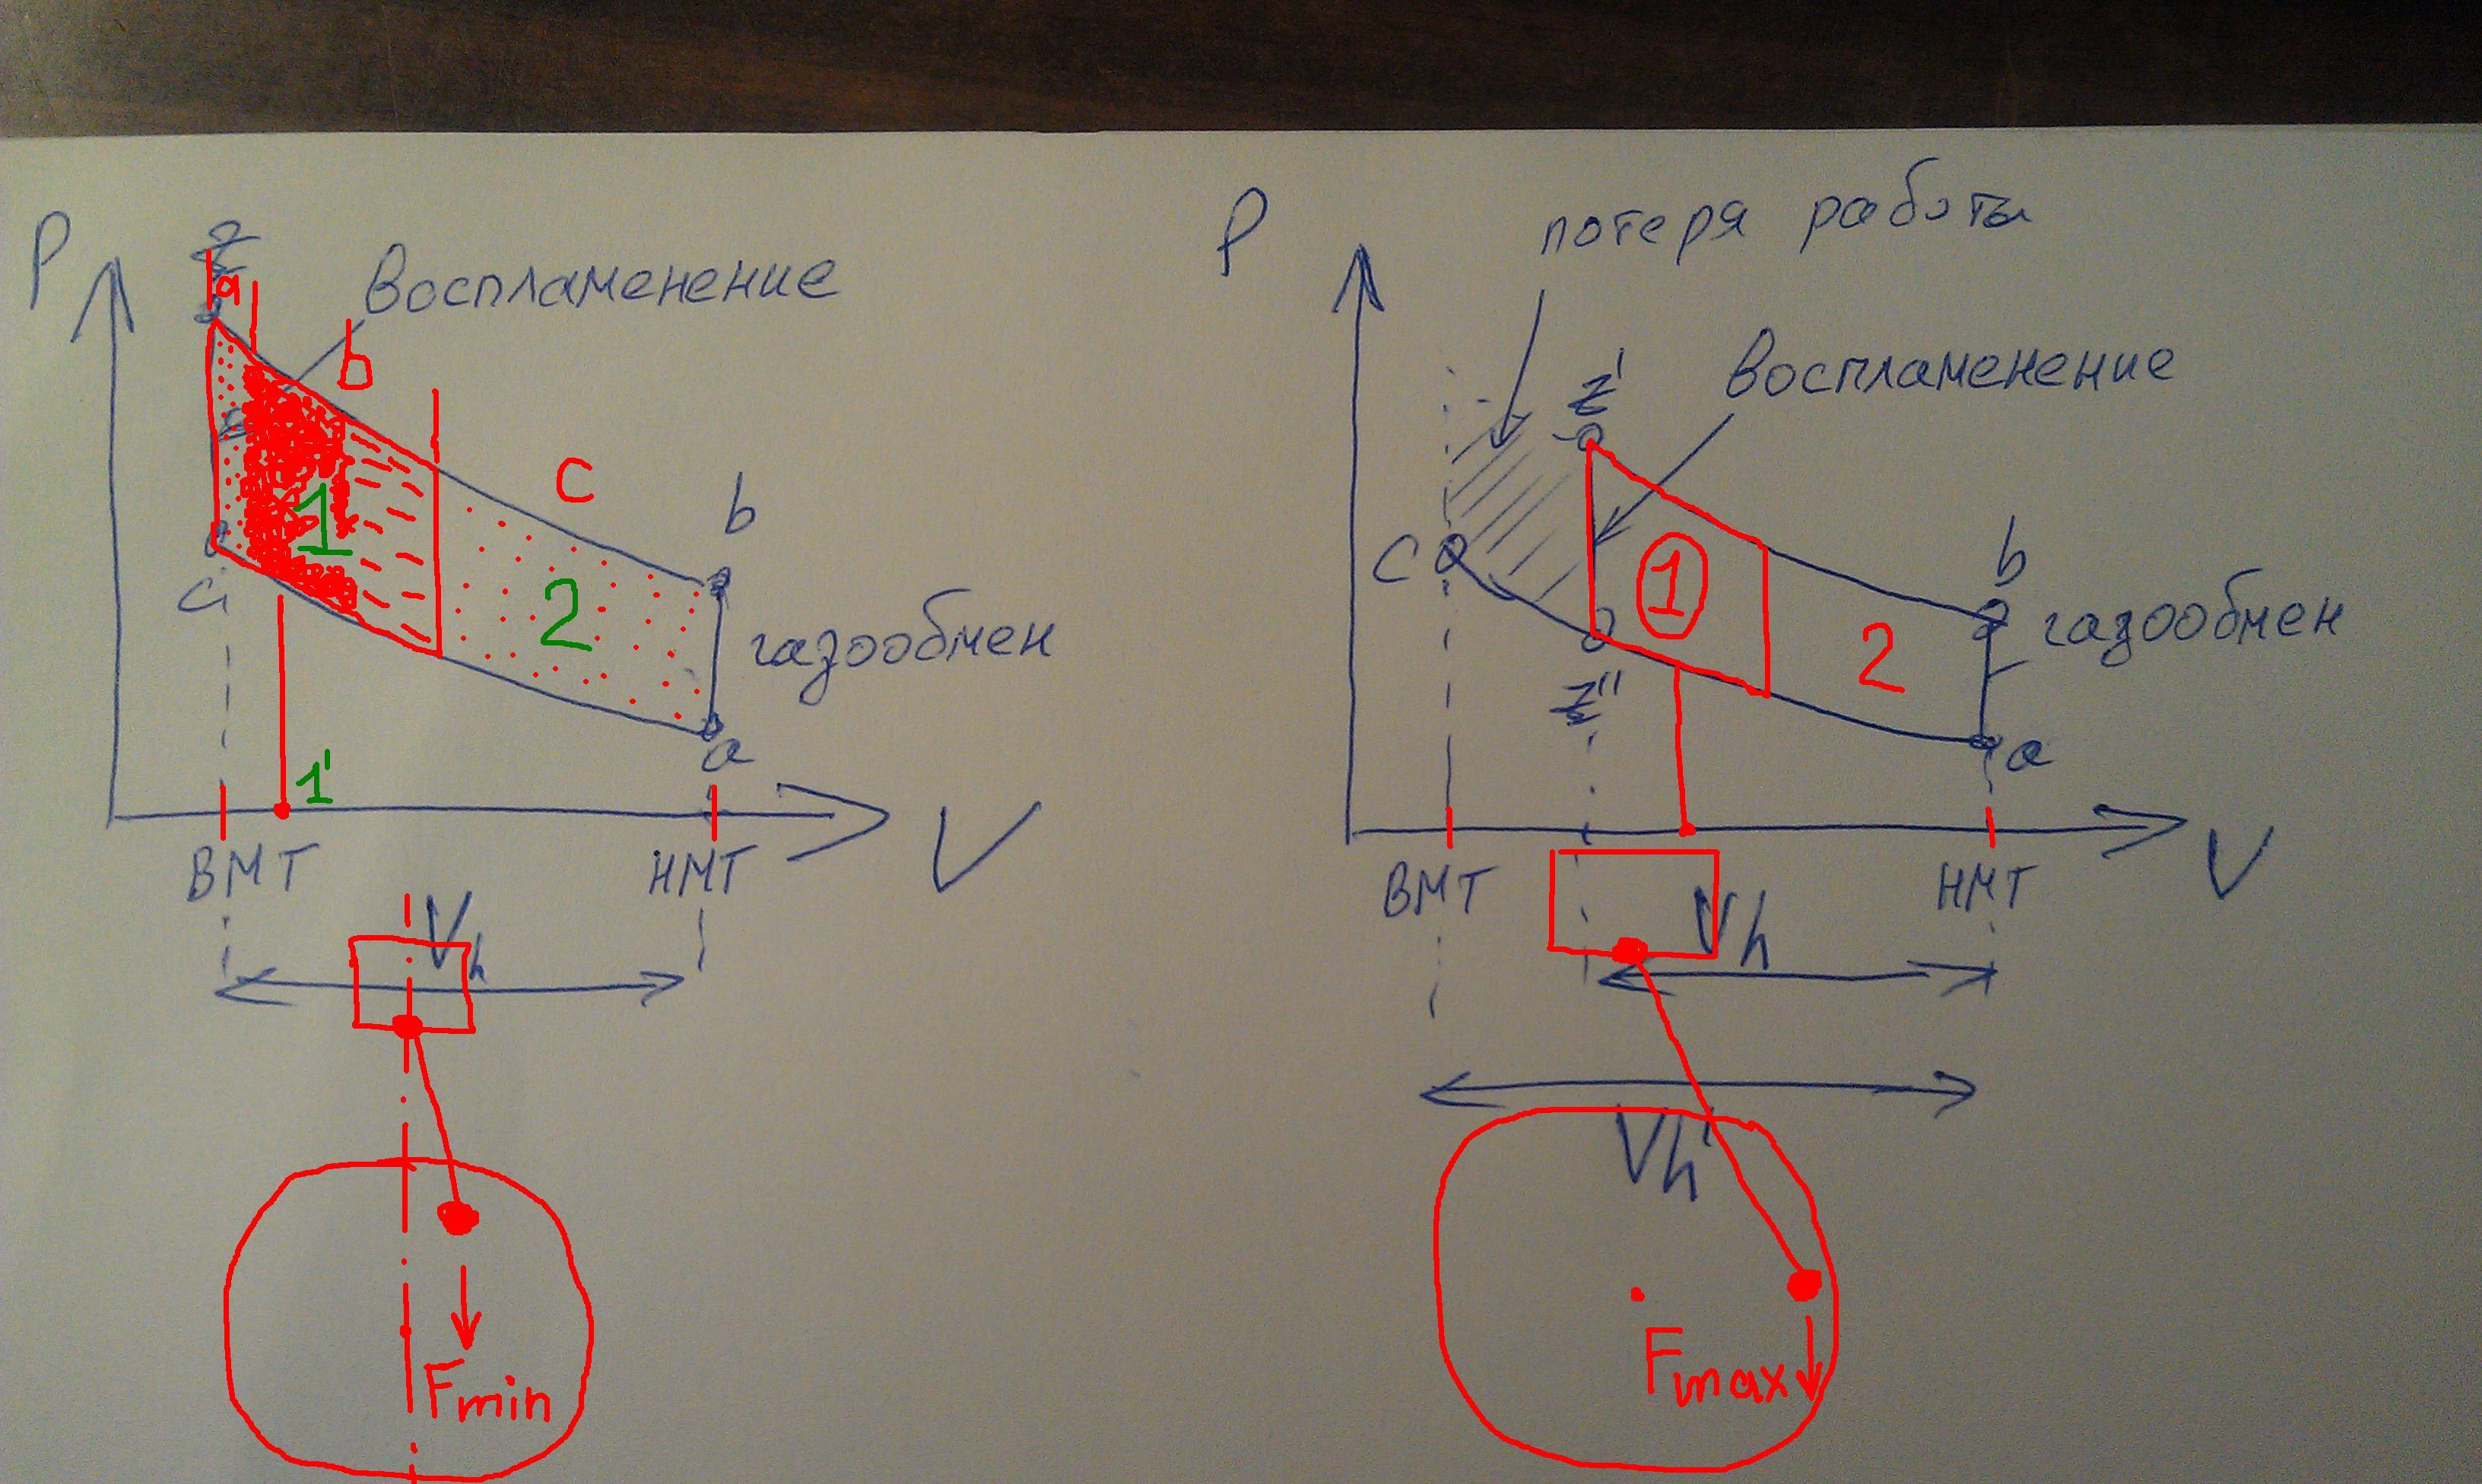 P
Z
a
Воспламенение
b
c
b
1
2
c
газообмен
a
1'
ВМТ
НМТ
V
Vh
Fmin
P
потеря работы
z'
Воспламенение
c
1
b
2
газообмен
z''
a
ВМТ
НМТ
V
Vh
Vh'
Fmax